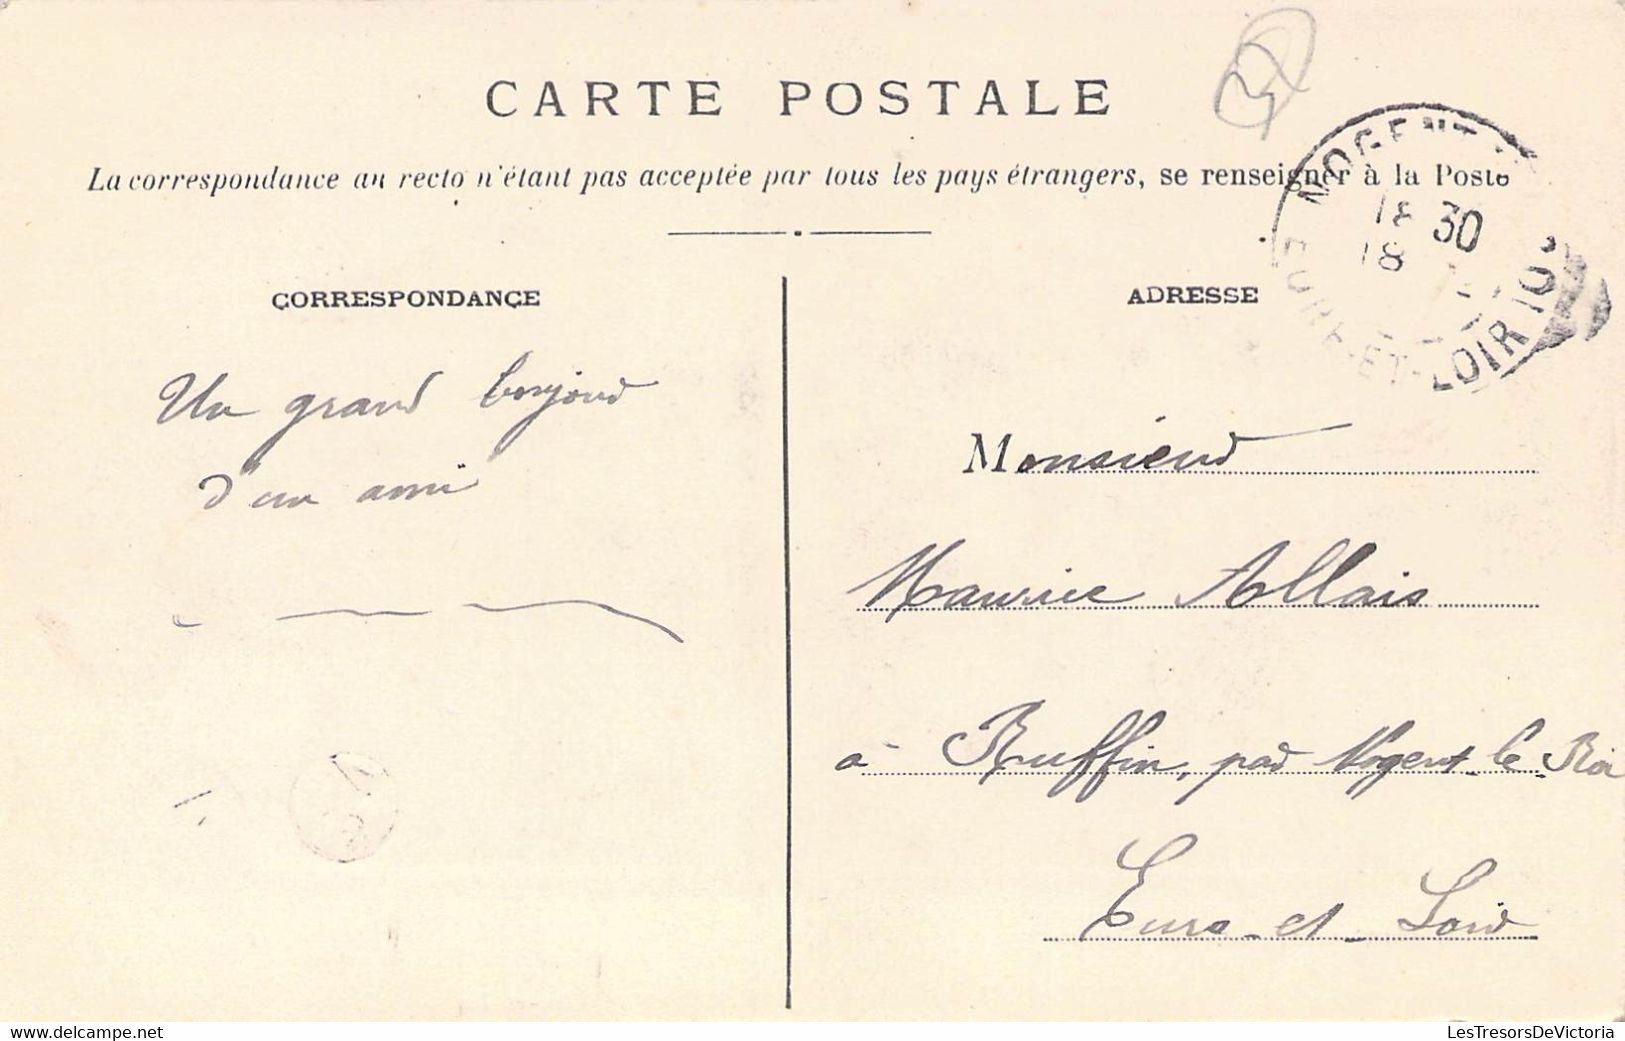 CARTE POSTALE
La correspondance au recto n'étant pas acceptée par tous les pays étrangers, se renseigner à la Poste
CORRESPONDANCE
Un grand bonjour
d'un ami
ADRESSE
NOGENT
18 30
18
EURE-ET-LOIR
Monsieur
Maurice Allais
à Ruffin, par Nogent-le-Roi
Eure-et-Loir
delcampe.net
LesTresorsDeVictoria